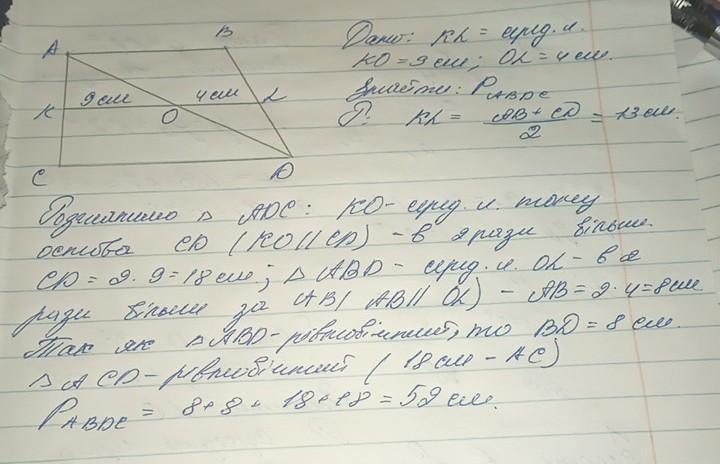 A B
Дано: KL = серед. л.
KO = 9 см; OL = 4 см.
9 см 4 см
K O L
Знайти: P ABDC
P: KL = AB + CD / 2 = 13 см.
C D
Розглянемо △ ADC: KO - серед. л. тому
основа CD (KO || CD) - в 2 рази більше
CD = 2 · 9 = 18 см; △ ABD - серед. л. OL - в 2
рази більше за AB (AB || OL) - AB = 2 · 4 = 8 см
Так як △ ABD - рівнобічний, то BD = 8 см.
△ ACD - рівнобічний (18 см - AC)
P ABDC = 8 + 8 + 18 + 18 = 52 см.